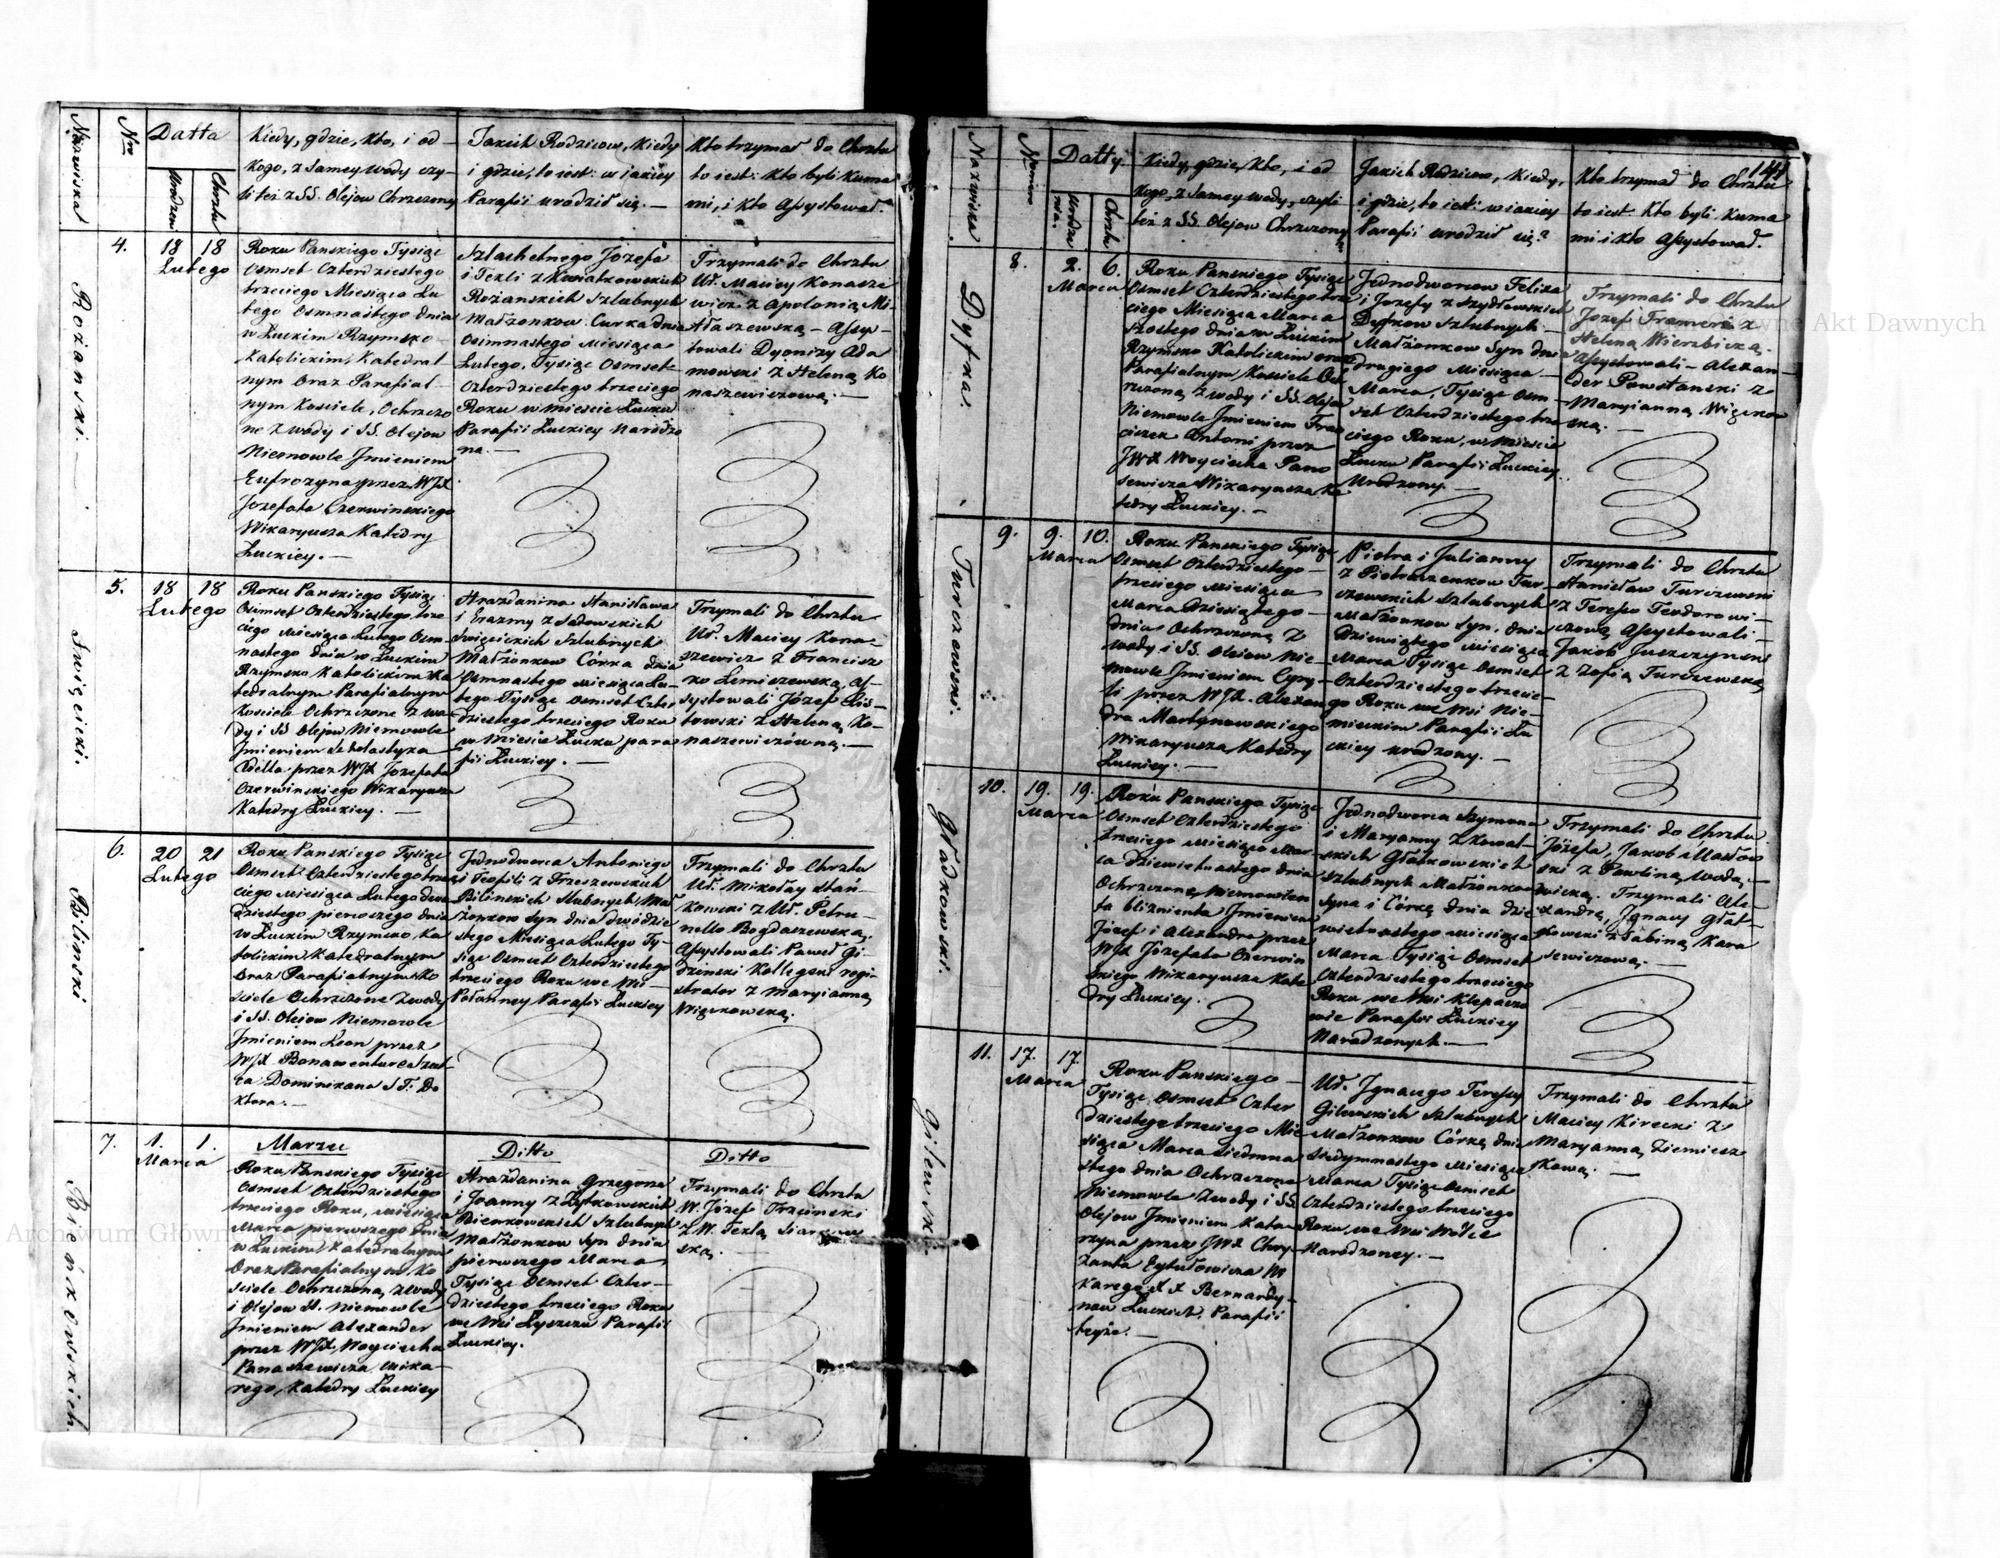 Nazwiska
Nro
Datta
Urodzenia
Chrztu
Kiedy, gdzie, kto, i od
kogo, z samey wody czy-
li też z SS. Olejow Chrzczony
Jakich Rodzicow, Kiedy
i gdzie, to iest: w iakiey
Parafii urodził się. —
Kto trzymał do Chrztu
to iest: Kto byli Kuma
mi, i kto Assystował.
Rożanski. —
4.
18 18
Lutego
Roku Panskiego Tysiąc
Osmset Czterdziestego
trzeciego Miesiąca Lu
tego Osmnastego dnia
w Łuckim Rzymsko-
Katolickim, Katedral
nym Oraz Parafial-
nym Kosciele, Ochrzczo
ne z wody i SS. Olejow
Niemowle Jmieniem
Eufrozyna przez WJX
Jozefata Czerwinskiego
Wikaryusza Katedry
Łuckiey. —
Szlachetnego Jozefa
i Tekli z Kwiatkowskich
Rożanskich Szlubnych
Małżonkow Curka dnia
Osimnastego Miesiąca
Lutego, Tysiąc Osmset
Czterdziestego trzeciego
Roku w miescie Łucku
Parafii Łuckiey Narodzo
na. —
Trzymali do Chrztu
Uł. Maciey Konasze
wicz z Apolonią Mi-
tłaszewską — Assy-
stowali Dyonizy Ada
mowski z Heleną Ko
naszewiczową. —
Swięcicki.
5.
18 18
Lutego
Roku Panskiego Tysiąc
Osimset Czterdziestego trze
ciego Miesiąca Lutego Osm
nastego dnia w Łuckim
Rzymsko Katolickim Ka
tedralnym Parafialnym
Kosciele Ochrzczone z wo
dy i SS Olejow Niemowle
Jmieniem Szkolastyka
Adella przez WJX Jozefata
Czerwinskiego Wikaryusza
Katedry Łuckiey. —
Hrażdanina Stanisława
i Erazmy z Sadowskich
Swięcickich Szlubnych
Małżonkow Córka dnia
Osmnastego Miesiąca Lu-
tego Tysiąc Osmset Czter
dziestego trzeciego Roku
w Miescie Łucku para
fii Łuckiey. —
Trzymali do Chrztu
Uł. Maciey Kona-
szewicz z Francisz
ką Lemiszewską, As-
systowali Józef Lis-
towski z Heleną Ko-
naszewiczówną. —
Bilinski
6.
20 21
Lutego
Roku Panskiego Tysiąc
Osmset Czterdziestego trze
ciego Miesiąca Lutego dwu
dziestego pierwszego dnia
w Łuckim Rzymsko Ka
tolickim Katedralnym
Oraz Parafialnym Ko
sciele Ochrzczone z wody
i SS. Olejow Niemowle
Jmieniem Leon przez
WJX Bonawentura
Dominikana S. T. Do
ktora. —
Jednodworca Antoniego
i Teofili z Trzeszewskich
Bilinskich Slubnych Mał
żonkow syn dnia dwódzie
stego Miesiąca Lutego Ty-
siąc Osmset Czterdziestego
trzeciego Roku we Wsi —
Połonney Parafii Łuckiey
Trzymali do Chrztu
Uł. Mikołay Stań-
kowski z Uł. Petru-
nello Bogdaszewską,
Assystowali Paweł Gi-
dzinski Kollegow regi-
strator z Maryianną
Więckowską.
Bieńkowskich
7.
1. 1.
Marca
Marzec
Roku Panskiego Tysiąc
Osmset Czterdziestego
trzeciego Roku, Miesiąca
Marca pierwszego dnia
w Łuckim Katedralnym
Oraz Parafialnym Ko
sciele Ochrzczone, z wody
i Olejow St. Niemowle
Jmieniem Alexander
przez WJX Woyciecha
Panaszewicza Wika-
rego, Katedry Łuckiey
Ditto
Hrażdanina Grzegorza
i Joanny z Żytkowskich
Bienkowskich Szlubnych
Małżonkow syn dnia
pierwszego Marca
Tysiąc Osmset Czter-
dziestego trzeciego Roku
we Wsi Łyszczu Parafii
Łuckiey.
Ditto
Trzymali do Chrztu
W. Józef Trzcinski
z W. Teklą
ską.
141
Nazwiska.
Numero
Datty
Urodze
nia.
Chrztu
Kiedy, gdzie, kto, i od
kogo, z samey wody, czyli
też z SS Olejow Chrzczony
Jakich Rodzicow, Kiedy,
i gdzie, to iest: w iakiey
Parafii urodził się?
Kto trzymał do Chrztu
to iest. Kto byli Kuma
mi i kto Assystował.
Dytka.
8.
2. 6.
Marca
Roku Panskiego Tysiąc
Osmset Czterdziestego trze
ciego Miesiąca Marca
szostego dnia w Łuckim
Rzymsko Katolickim oraz
Parafialnym Kosciele Och
rczone z wody i SS. Oleja
Niemowle Jmieniem Fran
ciszek Antoni przez
JWX Woyciecha Pana
sewicza Wikaryusza Ka
tedry Łuckiey. —
Jednodworcow Felixa
i Jozefy z Szydłowskich
Dytkow szlubnych —
Małżonkow Syn dnia
drugiego Miesiąca —
Marca, Tysiąc Osm-
set Czterdziestego trze
ciego Roku, w Miescie
Łucku Parafii Łuckiey
Urodzony. —
Trzymali do Chrztu
Jozef z
Heleną Wierzbicką —
Assystowali — Alexan-
der Powstanski z
Maryianną Więckow
ską. —
Turczewski.
9.
9. 10.
Marca
Roku Panskiego Tysiąc
Osmset Czterdziestego —
trzeciego Miesiąca
Marca dziesiątego —
dnia Ochrzczone z
wody i SS. Olejow Nie-
mowle Jmieniem Cyry-
li przez WJX. Alexan
dra Martynowskiego
Wikaryusza Katedry
Łuckiey. —
Piotra i Julianny
z Pietraszenkow Tur-
czewskich Szlubnych
Małżonkow Syn, dnia
Dziewiątego Miesiąca
Marca Tysiąc Osmset
Czterdziestego trzecie-
go Roku we Wsi Nie-
mieckim Parafii Łu
ckiey urodzony. —
Trzymali do Chrztu
Stanisław Turczewski
z Teressą Teodorowi-
czową Assystowali —
Jakob Juszczynski
z Zofią Turczewską
Głatkowski.
10.
19. 19.
Marca
Roku Panskiego Tysiąc
Osmset Czterdziestego
trzeciego Miesiąca Mar-
ca Dziewietnastego dnia
Ochrzczone, Niemowlen-
ta bliznienta Jmieniem
Józef i Alexandra przez
WJX Józefata Czerwin
skiego Wikaryusza Kate
dry Łuckiey.
Jednodworca Szymona
i Maryanny z Kowal-
skich Głatkowskich
Szlubnych Małżonkow
syna i Córkę dnia dzie
wietnastego Miesiąca
Marca Tysiąc Osmset
Czterdziestego trzeciego
Roku we Wsi Klepaczo
wie Parafii Łuckiey
Narodzonych. —
Trzymali do Chrztu
Józefa, Jakob Masłow
ski z Pawliną Woda —
wicką. Trzymali Ale-
xandrę, Jgnacy Głat-
kowski z Sabiną Kara
sewiczową. —
Gilewski
11.
17. 17.
Marca
Roku Panskiego —
Tysiąc Osmset Czter
dziestego trzeciego Mie
siąca Marca Siedmna
stego dnia Ochrzczone
Niemowle z wody i SS.
Olejow Jmieniem Kata-
rzyna przez JWX Chry-
zanta Wi
karego X X Bernardy-
now Łuckich. Parafii
teyże. —
Uł. Jgnacego Teressy
Gilewskich Szlubnych
Małżonkow Córkę dnia
Siedymnastego Miesiąca
Marca Tysiąc Osmset
Czterdziestego trzeciego
Roku we Wsi Wólce
Narodzoney. —
Trzymali do Chrztu
Maciey Kirecki z
Maryanną Ziemiesz
kową. —
Archiwum Główne Akt Dawnych
Archiwum Główne Akt Dawnych